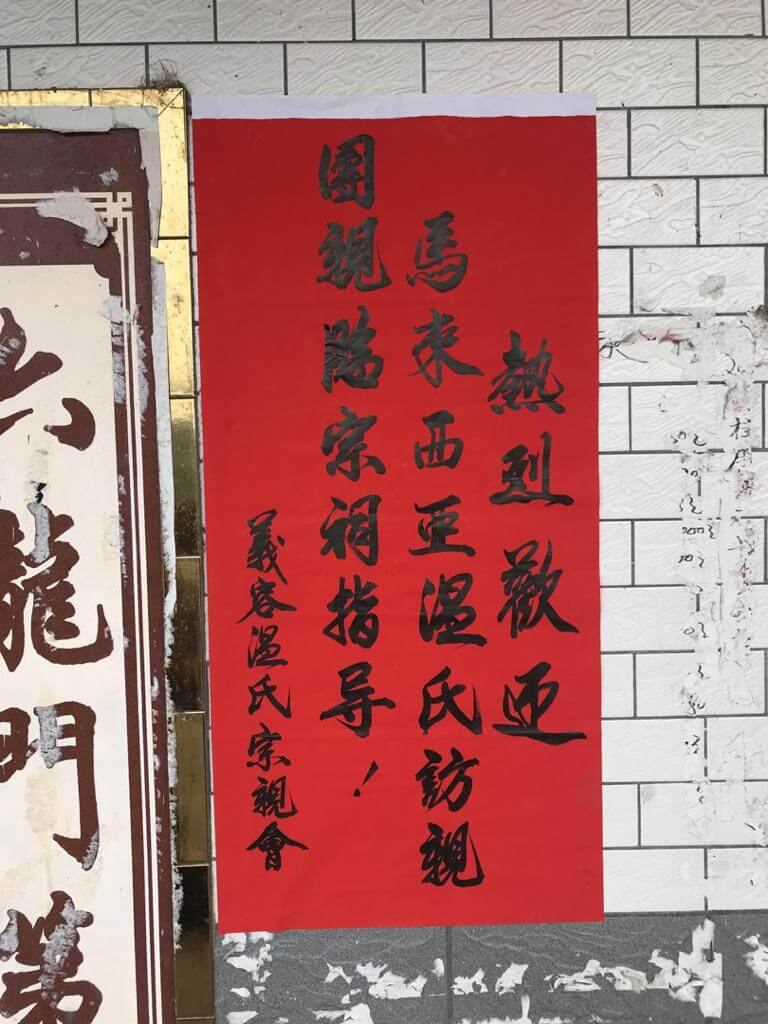 熱烈歡迎
馬來西亞溫氏訪親
團親臨宗祠指导！
義容溫氏宗親會
六龍門第